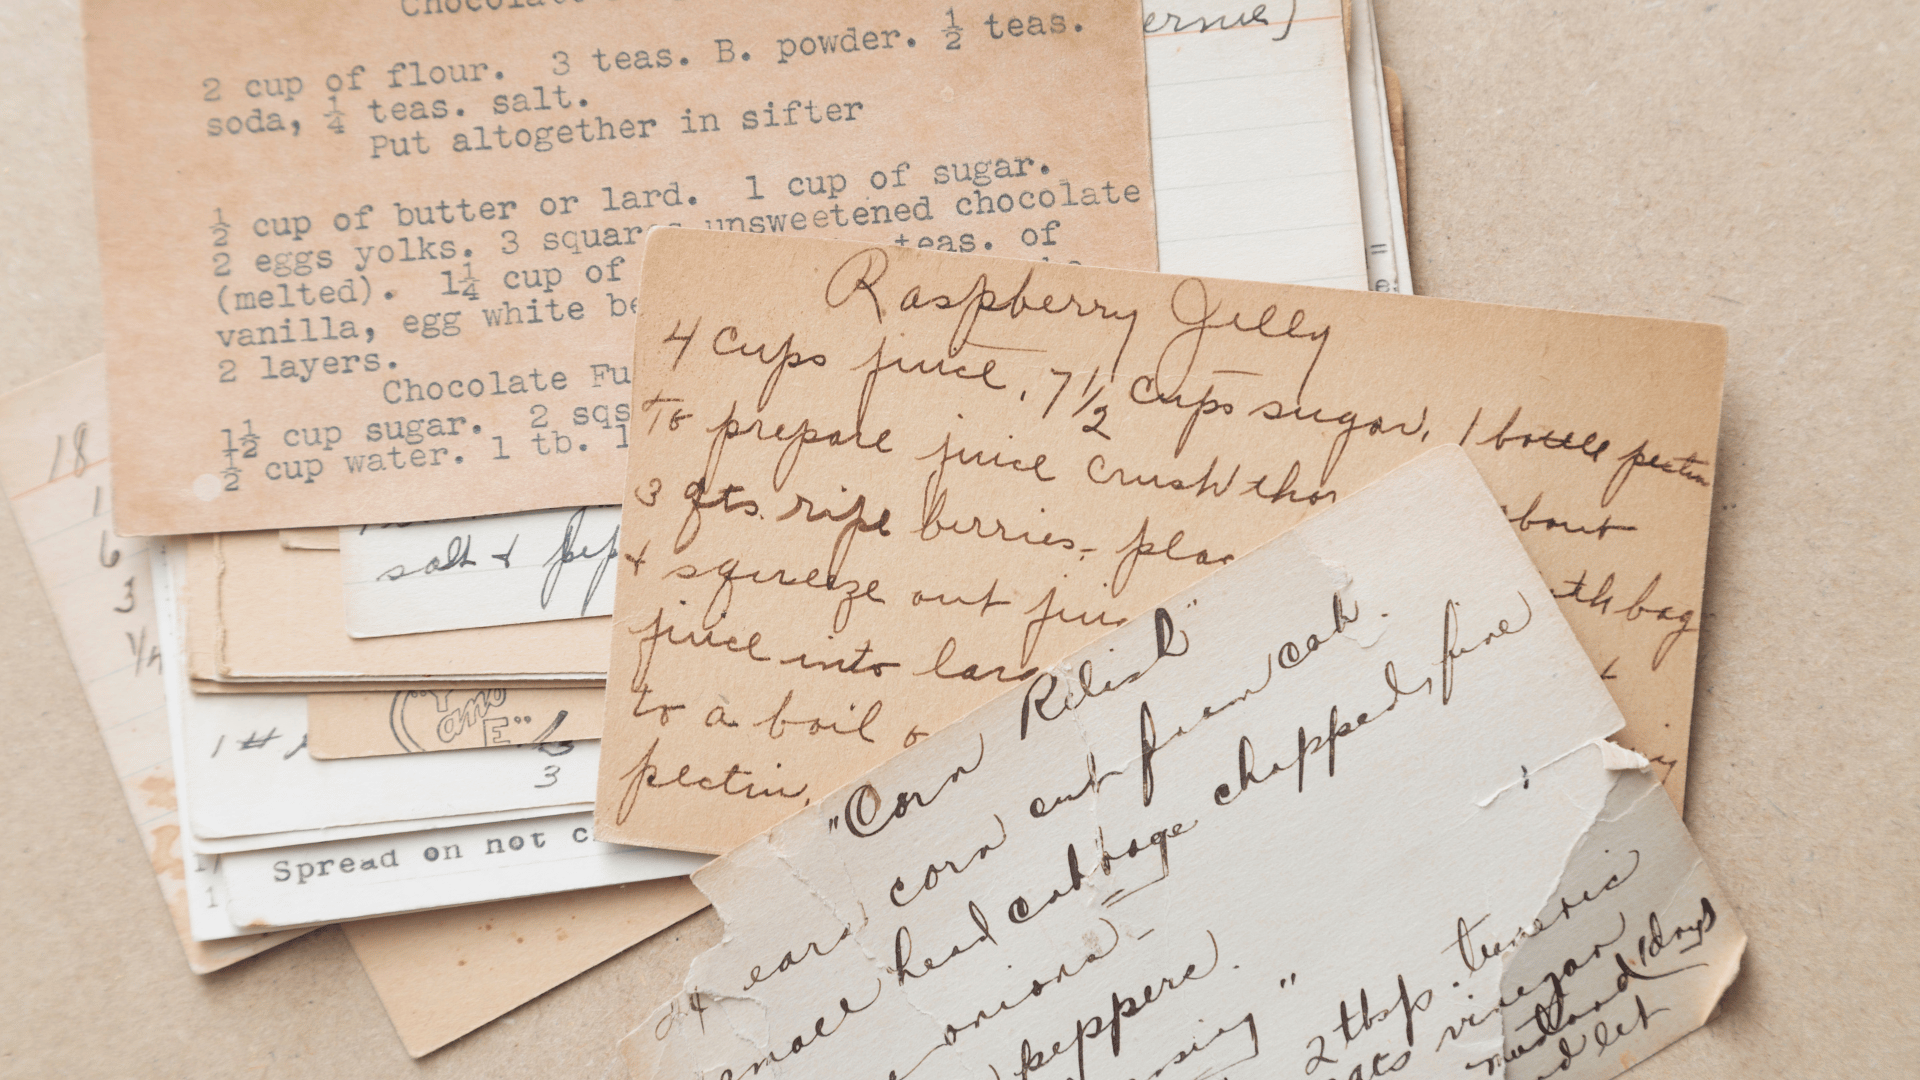 Chocolate
2 cup of flour. 3 teas. B. powder. ½ teas.
soda, ¼ teas. salt.
Put altogether in sifter
½ cup of butter or lard. 1 cup of sugar.
2 eggs yolks. 3 squares unsweetened chocolate
(melted). 1¼ cup of teas. of
vanilla, egg white be
2 layers.
Chocolate Fu
1½ cup sugar. 2 sqs
½ cup water. 1 tb.
Raspberry Jelly
4 cups juice, 7½ cups sugar, 1 bottle pectin
To prepare juice crush thor about
3 qts. ripe berries, plac th bag
+ squeeze out jui
juice into larg
to a boil
pectin.
"Corn Relish"
24 ears corn cut from cob.
small head cabbage chopped fine
onions
peppers.
2 tbsp. tumeric
qts vinegar
mustard
let
salt + pep
18
1
6
3
1/4
1 #
"Y
and
E"
3
Spread on not c